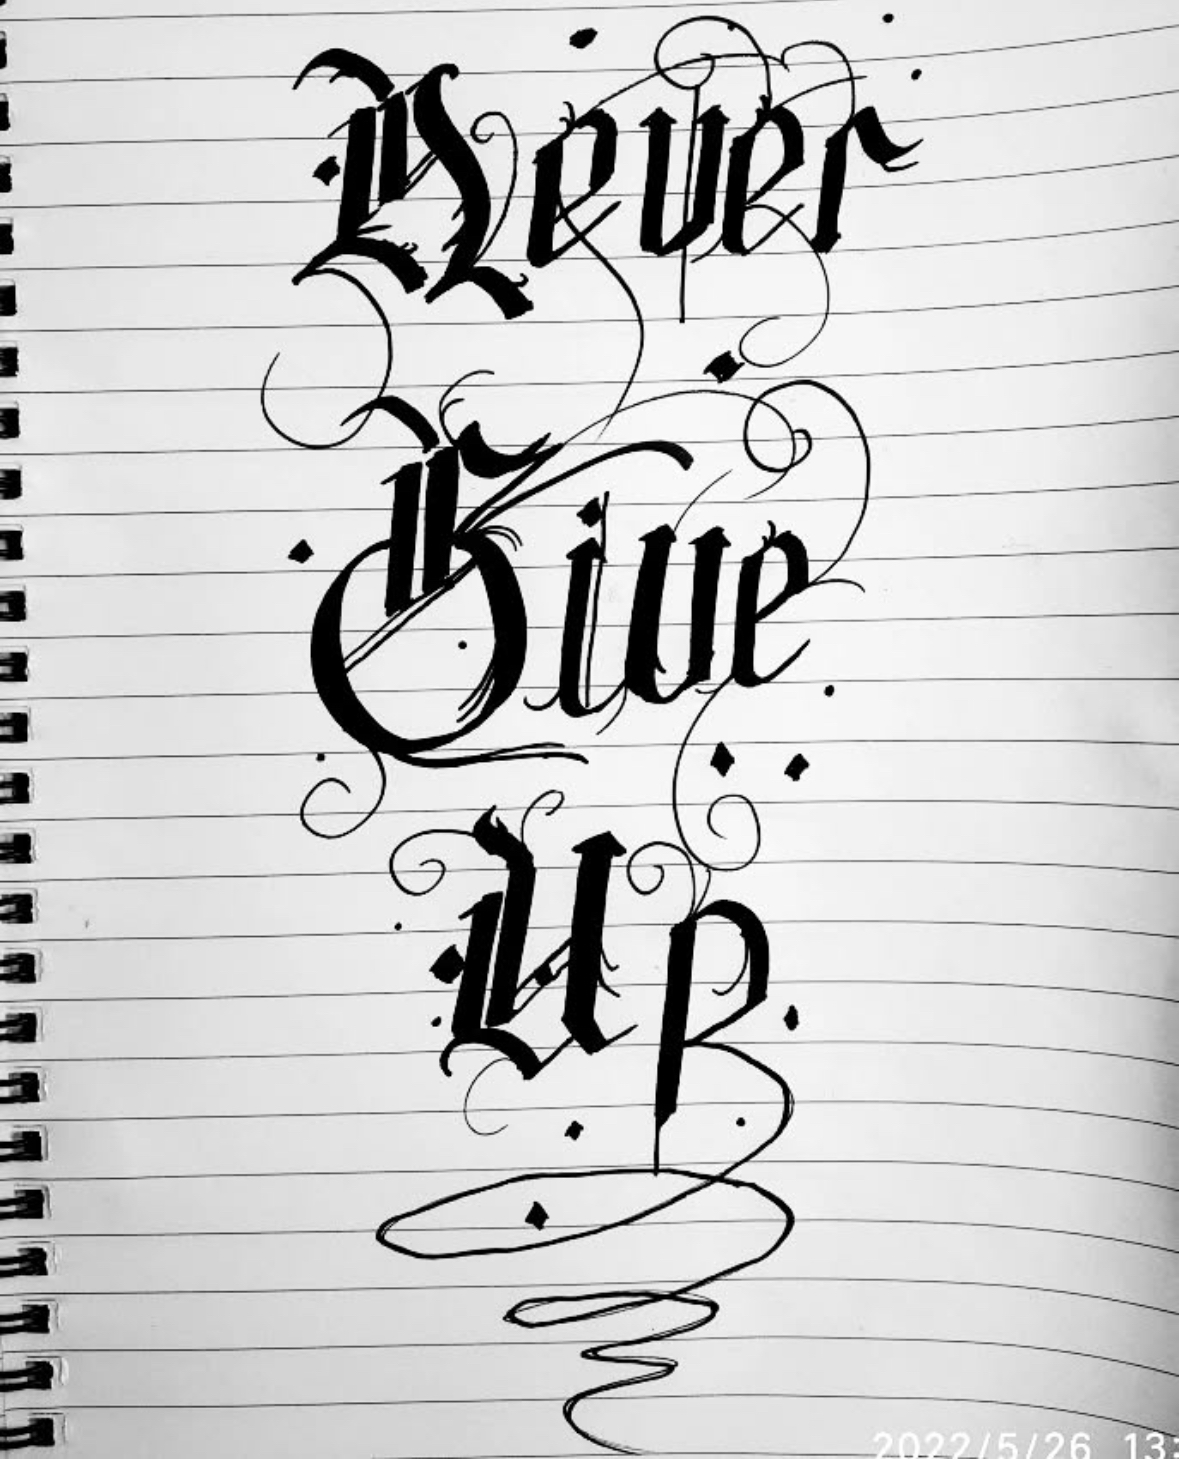 Never
Give
Up
2022/5/26 13: